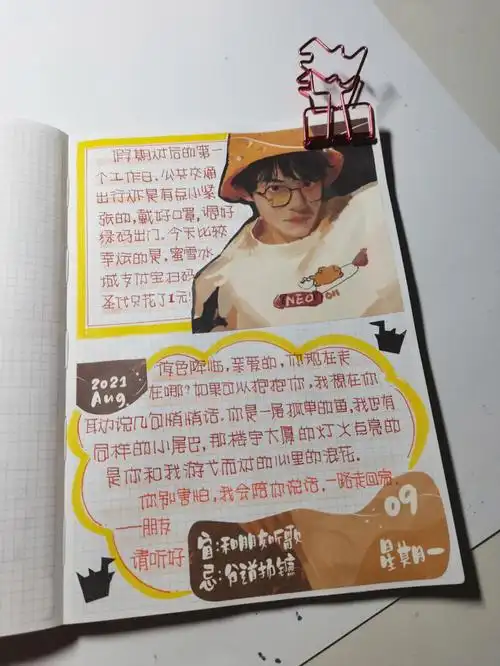 假期过后的第一
个工作日，公共交通
出行还是有点小紧
张的，戴好口罩，调好
绿码出门。今天比较
幸运的是，蜜雪冰
城支付宝扫码
圣代只花了1元！
NEO
2021
Aug
夜色降临，亲爱的，你现在走
在哪？如果可以抱抱你，我想在你
耳边说几句悄悄话。你是一尾孤单的鱼，我也有
同样的小尾巴，那楼宇大厦的灯火点亮的
是你和我游弋而过的心里的浪花。
你别害怕，我会陪你说话，一路走回家。
——朋友
请听好
宜：和朋友听歌
忌：分道扬镳
09
星期一